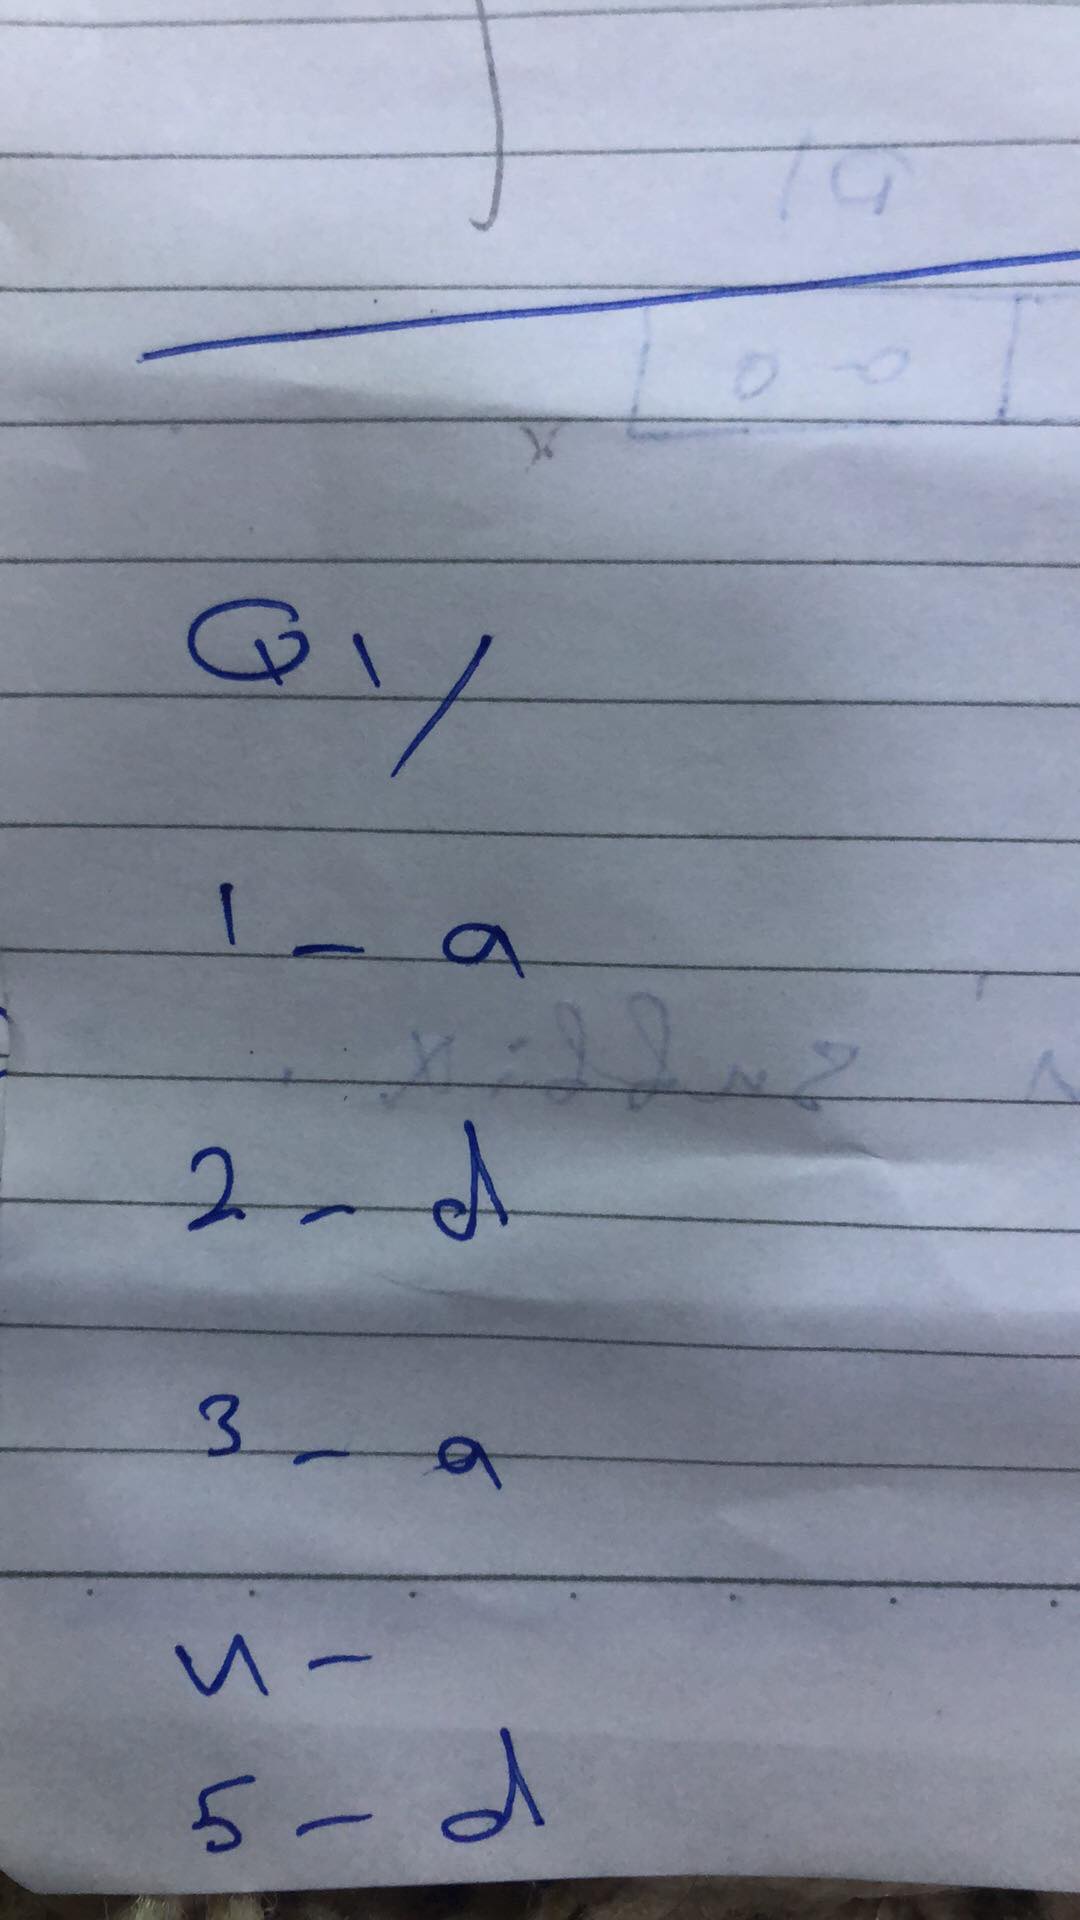 Q1/
1 - a
2 - d
3 - a
4 -
5 - d